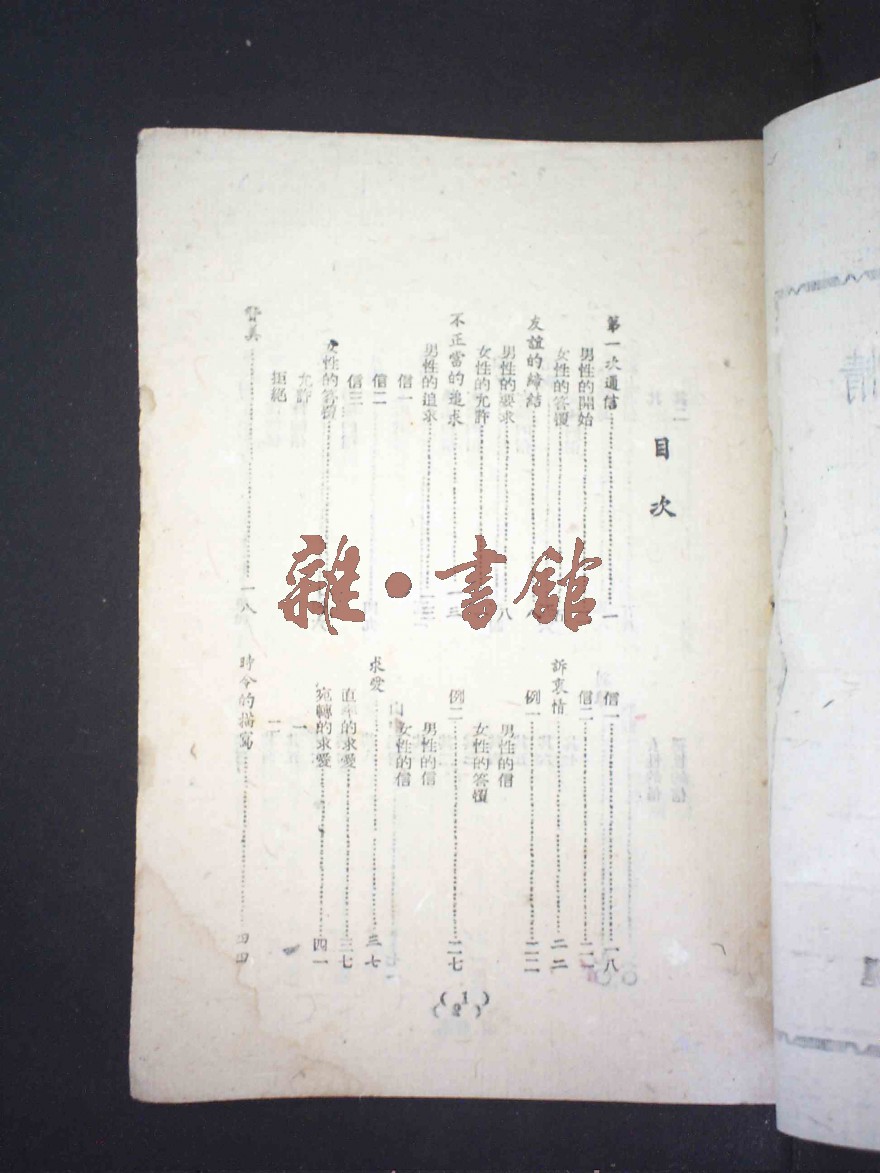 目次
第一次通信……一
男性的開始
女性的答覆
友誼的締結
男性的要求……八
女性的允許
不正當的追求……一三
男性的追求……一三
信一
信二
信三
女性的答覆
允許
拒絕
讚美……一八
信一……一八
信二……二一
訴衷情……二二
例一……二二
男性的信
女性的答覆
例二……二七
男性的信
女性的信
求愛……三七
直率的求愛……三七
宛轉的求愛……四一
一
二
時令的描寫……四四
(1)
雜·書館
情